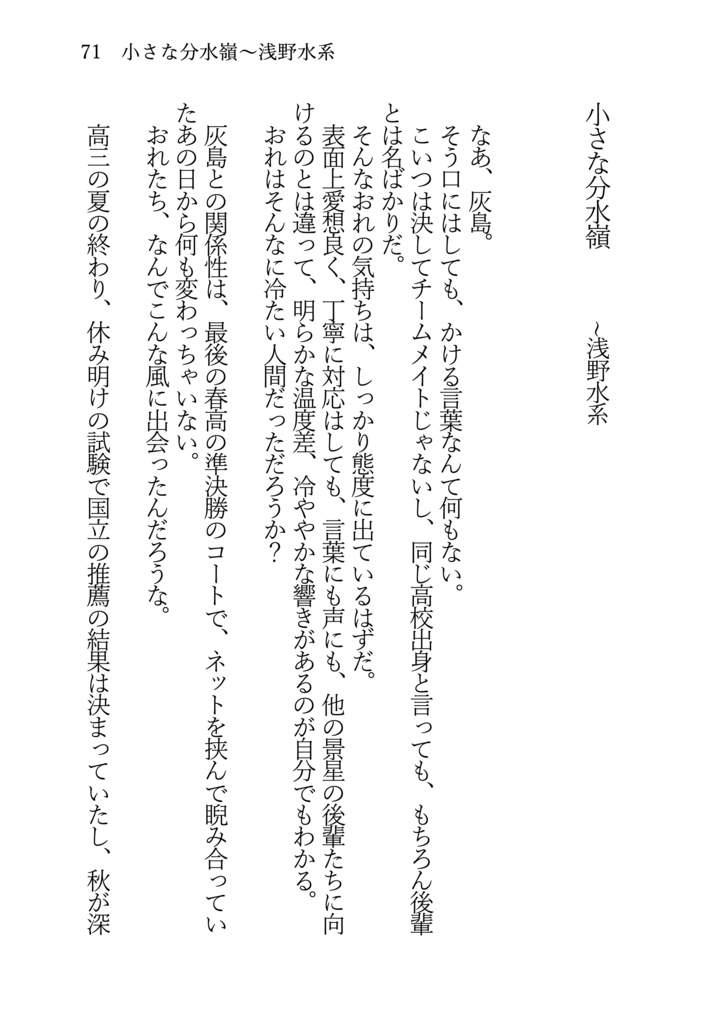 71 小さな分水嶺～浅野水系
小さな分水嶺　　～浅野水系
なあ、灰島。
そう口にはしても、かける言葉なんて何もない。
こいつは決してチームメイトじゃないし、同じ高校出身と言っても、もちろん後輩
とは名ばかりだ。
そんなおれの気持ちは、しっかり態度に出ているはずだ。
表面上愛想良く、丁寧に対応はしても、言葉にも声にも、他の景星の後輩たちに向
けるのとは違って、明らかな温度差、冷ややかな響きがあるのが自分でもわかる。
おれはそんなに冷たい人間だっただろうか？
灰島との関係性は、最後の春高の準決勝のコートで、ネットを挟んで睨み合ってい
たあの日から何も変わっちゃいない。
おれたち、なんでこんな風に出会ったんだろうな。
高三の夏の終わり、休み明けの試験で国立の推薦の結果は決まっていたし、秋が深